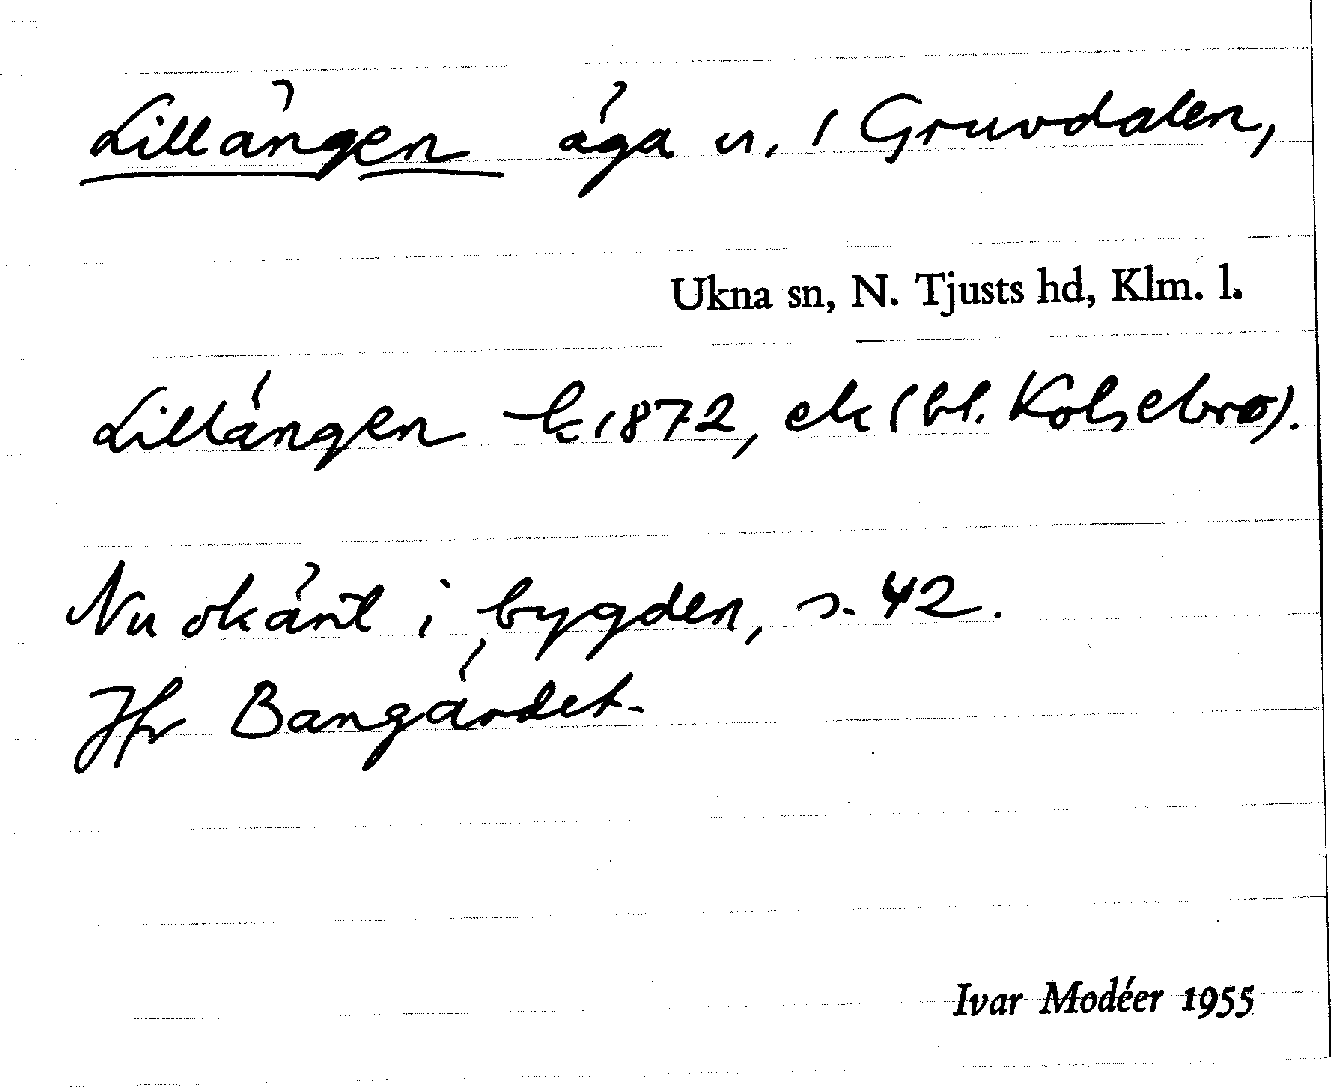 Lillängen äga u. / Gruvdalen,
Ukna sn, N. Tjusts hd, Klm. l.
Lillängen k 1872, ek (bl. Kolsebro).
Nu okänt i bygden, s. 42.
Jfr Bangärdet.
Ivar Modéer 1955